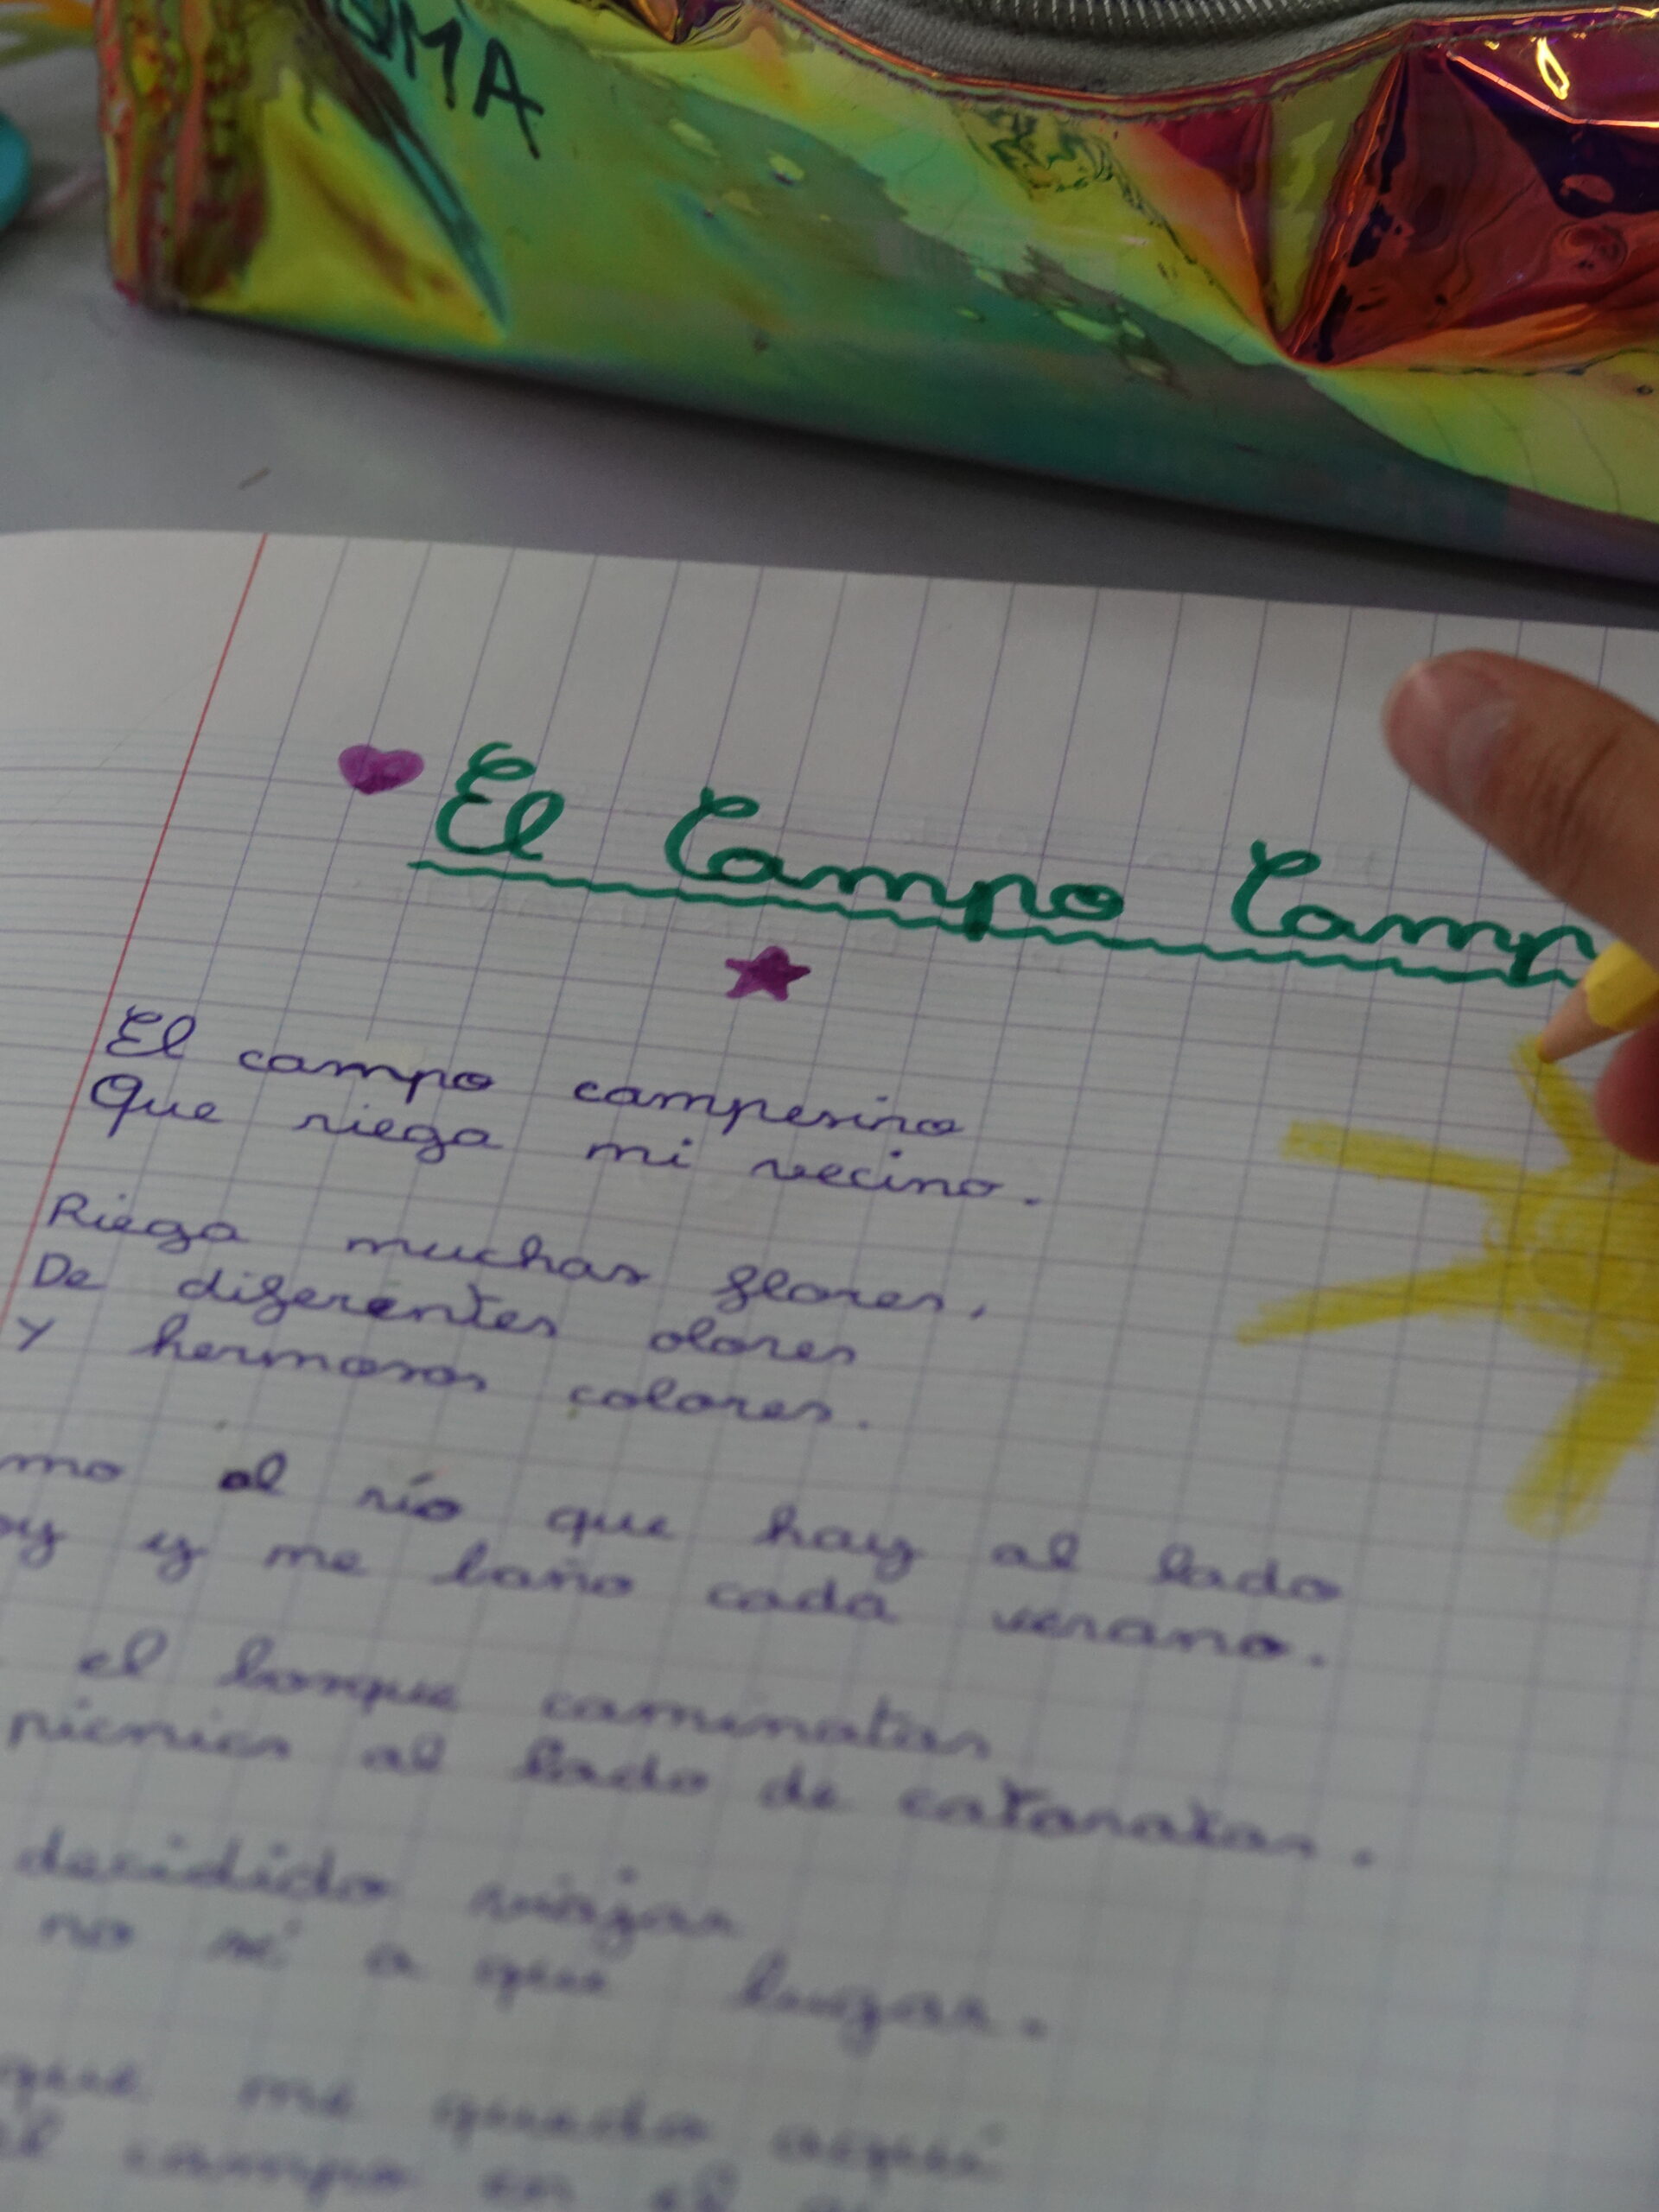 OMA
El Campo Camp
El campo campesino
Que riega mi vecino.
Riega muchas flores,
De diferentes olores
Y hermosos colores.
mo al río que hay al lado
oy y me baño cada verano.
el bosque caminatas
picnics al lado de cataratas.
decidido viajar
no sé a que lugar.
que me quedo aquí
el campo en el